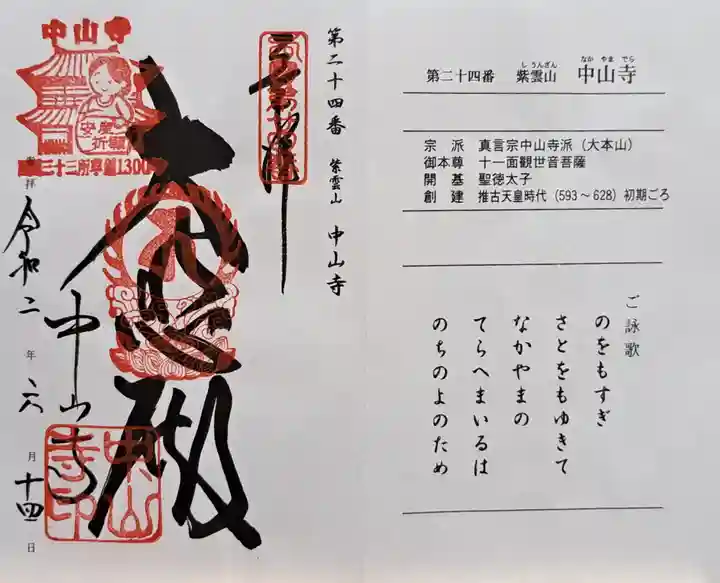 第二十四番 紫雲山 中山寺
奉拝
大悲殿
中山寺
令和二年六月十四日
中山寺
安産の
祈願所
三十三所草創1300年
しうんざん なかやまでら
第二十四番 紫雲山 中山寺
宗派 真言宗中山寺派(大本山)
御本尊 十一面観世音菩薩
開基 聖徳太子
創建 推古天皇時代(593~628)初期ごろ
ご詠歌
のをもすぎ
さとをもゆきて
なかやまの
てらへまいるは
のちのよのため